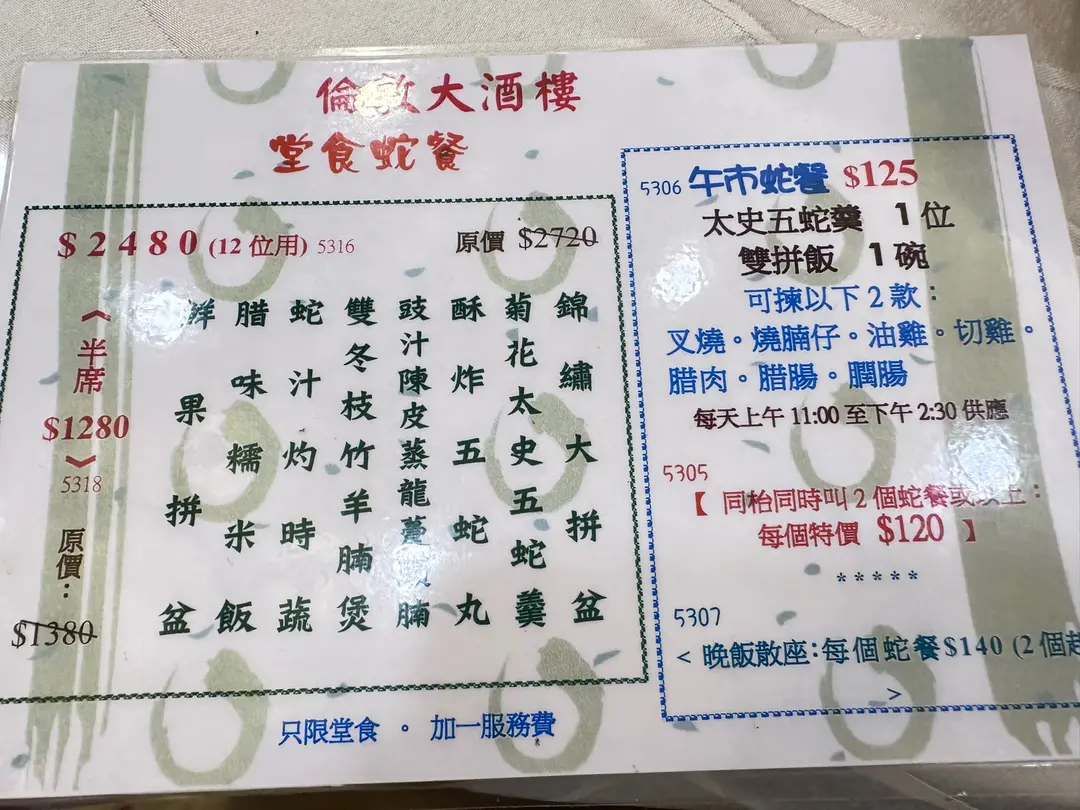 倫敦大酒樓
堂食蛇餐
$2480 (12位用) 5316
原價 $2720
錦繡大拼盆
菊花太史五蛇羹
酥炸五蛇丸
豉汁陳皮蒸龍躉腩
雙冬枝竹羊腩煲
蛇汁灼時蔬
腊味糯米飯
鮮果拼盆
《半席
$1280
》
5318
原價:
$1380
只限堂食 。 加一服務費
5306 午市蛇餐 $125
太史五蛇羹 1位
雙拼飯 1碗
可揀以下2款:
叉燒。燒腩仔。油雞。切雞。
腊肉。腊腸。膶腸
每天上午 11:00 至下午 2:30 供應
5305
【 同枱同時叫2個蛇餐或以上:
每個特價 $120 】
*****
5307
< 晚飯散座:每個蛇餐$140 (2個起
>